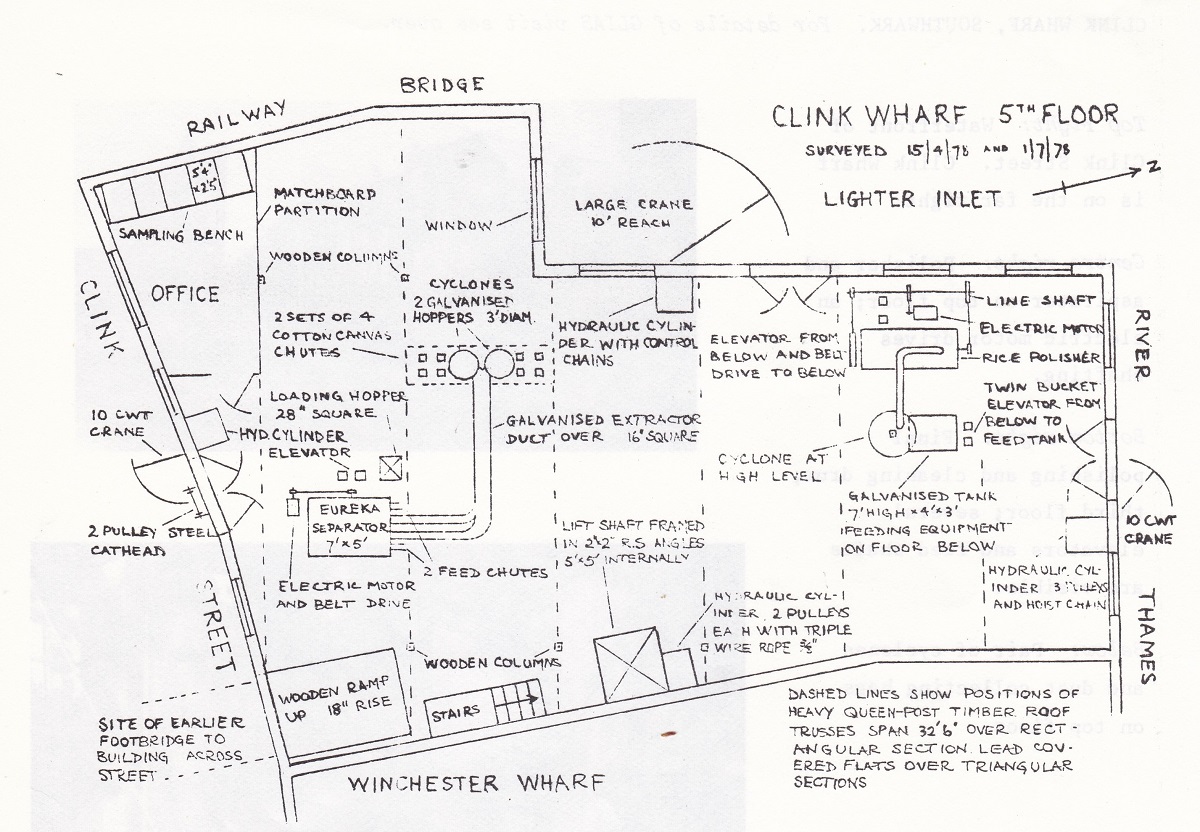 CLINK WHARF, SOUTHWARK. For details of GLIAS visit see over
BRIDGE
RAILWAY
CLINK WHARF 5TH FLOOR
SURVEYED 15/4/78 AND 1/7/78
LIGHTER INLET
N
5'4"
x2'5"
SAMPLING BENCH
MATCHBOARD
PARTITION
WINDOW
LARGE CRANE
10' REACH
WOODEN COLUMNS
OFFICE
CLINK
STREET
CYCLONES
2 GALVANISED
HOPPERS 3' DIAM.
2 SETS OF 4
COTTON CANVAS
CHUTES
HYDRAULIC CYLIN-
DER WITH CONTROL
CHAINS
ELEVATOR FROM
BELOW AND BELT
DRIVE TO BELOW
LINE SHAFT
ELECTRIC MOTOR
RICE POLISHER
RIVER
THAMES
TWIN BUCKET
ELEVATOR FROM
BELOW TO
FEED TANK
LOADING HOPPER
28" SQUARE
10 CWT
CRANE
HYD. CYLINDER
ELEVATOR
GALVANISED EXTRACTOR
DUCT OVER 16" SQUARE
CYCLONE AT
HIGH LEVEL
GALVANISED TANK
7' HIGH x 4' x 3'
FEEDING EQUIPMENT
ON FLOOR BELOW
10 CWT
CRANE
2 PULLEY STEEL
CATHEAD
EUREKA
SEPARATOR
7' x 5'
LIFT SHAFT FRAMED
IN 2"x2" R.S ANGLES
5'x5' INTERNALLY
2 FEED CHUTES
ELECTRIC MOTOR
AND BELT DRIVE
HYDRAULIC CYL-
INDER 3 PULLEYS
AND HOIST CHAIN
HYDRAULIC CYL-
INDER. 2 PULLEYS
EACH WITH TRIPLE
WIRE ROPE
WOODEN COLUMNS
WOODEN RAMP
UP 18" RISE
STAIRS
SITE OF EARLIER
FOOTBRIDGE TO
BUILDING ACROSS
STREET
WINCHESTER WHARF
DASHED LINES SHOW POSITIONS OF
HEAVY QUEEN-POST TIMBER ROOF
TRUSSES SPAN 32'6" OVER RECT
ANGULAR SECTION. LEAD COV-
ERED FLATS OVER TRIANGULAR
SECTIONS